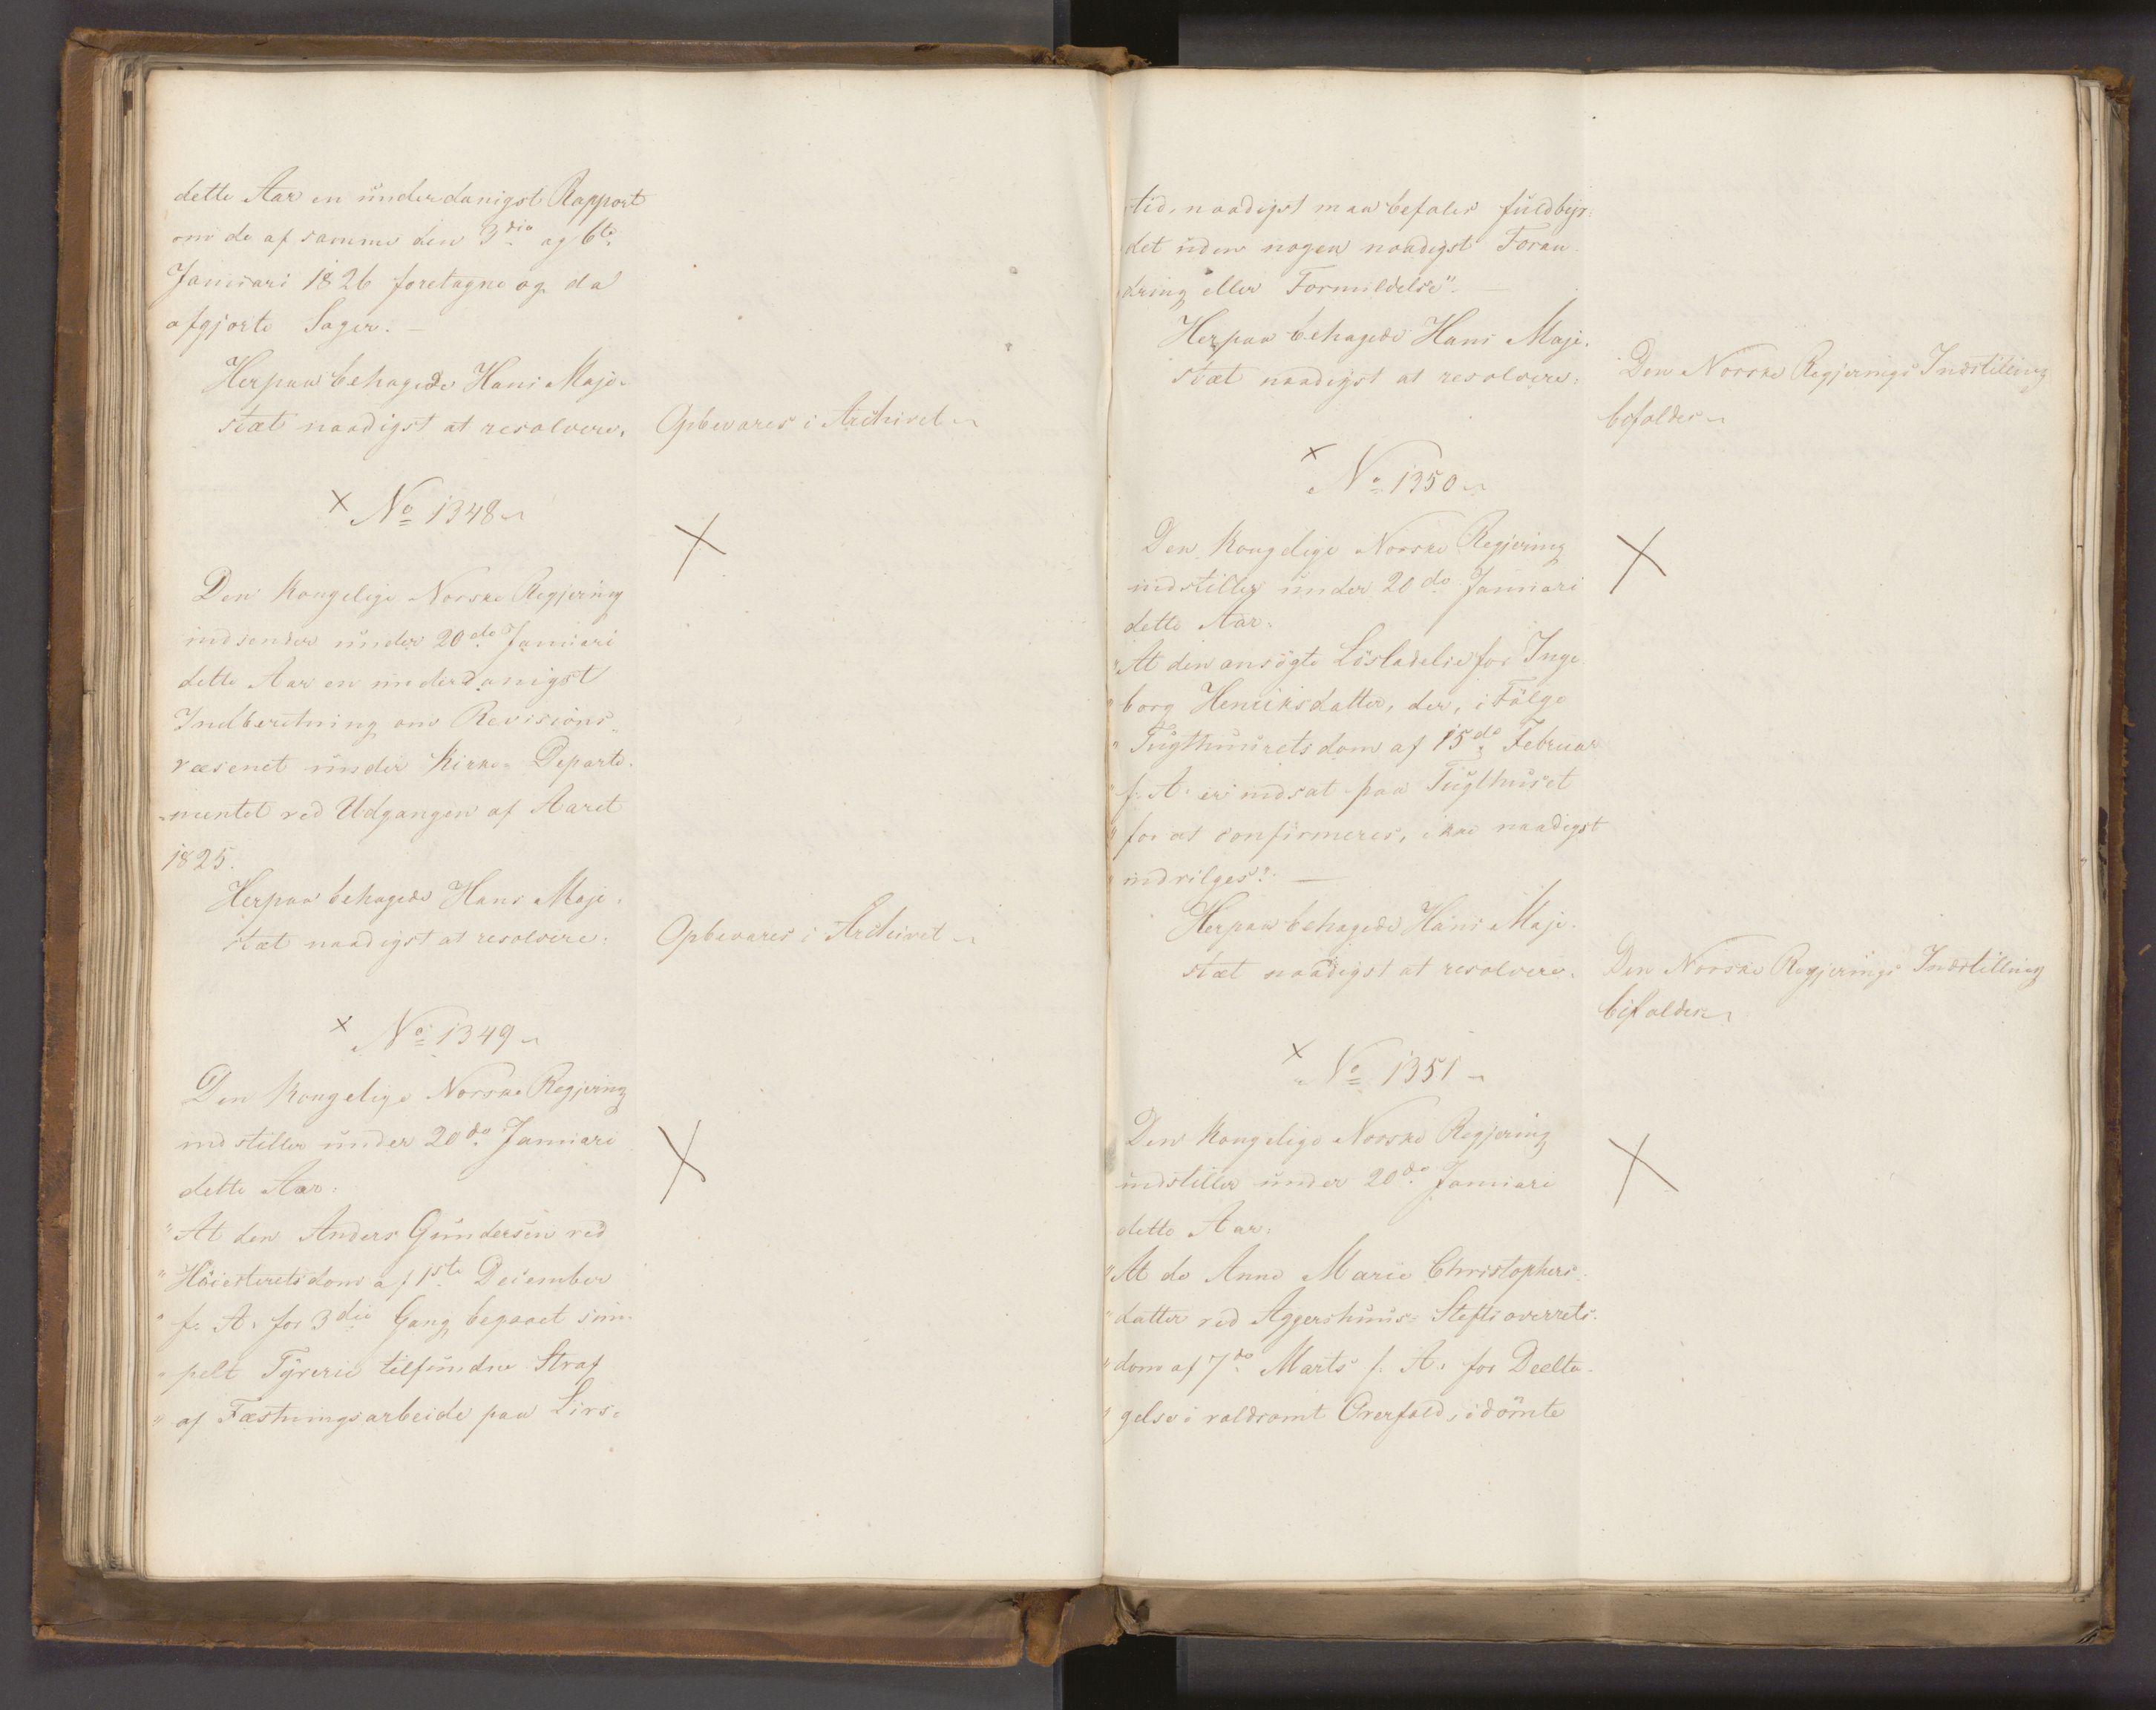 dette Aar en underdanigst Rapport
om de af samme den 3die og 6te
Januari 1826 foretagne og da
afgjorte Sager. —
Herpaa behagede Hans Maje-
stæt naadigst at resolvere.
Opbevares i Archivet
× No 1348
×
Den Kongelige Norske Regjering
indsender under 20de Januari
dette Aar en underdanigst
Indberetning om Revisions-
væsenet under Kirke-Departe-
mentet ved Udgangen af Aaret
1825.
Herpaa behagede Hans Maje-
stæt naadigst at resolvere:
Opbevares i Archivet
× No 1349
Den Kongelige Norske Regjering
×
indstiller under 20de Januari
dette Aar:
"At den Anders Gundersen ved
"Höiesteretsdom af 1ste December
" f. A. for 3die Gang begaaet sim-
" pelt Tyverie tilfundne Straf
" af Fæstningsarbeide paa Livs-
tid, naadigst maa befales fuldbyr-
det uden nogen naadigst Foran-
dring eller Formildelse". —
Herpaa behagede Hans Maje-
stæt naadigst at resolvere:
Den Norske Regjerings Indstilling
bifaldes
× No 1350
×
Den Kongelige Norske Regjering
indstiller under 20de Januari
dette Aar:
"At den ansögte Lösladelse for Inge-
" borg Henriksdatter, der, i Fölge
" Tugthuusretsdom af 15de Februar
" f. A. er indsat paa Tugthuset
" for at confirmeres, ikke naadigst
" indvilges". —
Herpaa behagede Hans Maje-
stæt naadigst at resolvere.
Den Norske Regjerings Indstilling
bifaldes
× No 1351
Den Kongelige Norske Regjering
×
indstiller under 20de Januari
dette Aar:
"At de Anne Marie Christophers-
"datter ved Aggershuus-Stiftsoverrets-
"dom af 7de Marts f. A. for Deelta-
" gelse i voldsomt Overfald, idömte